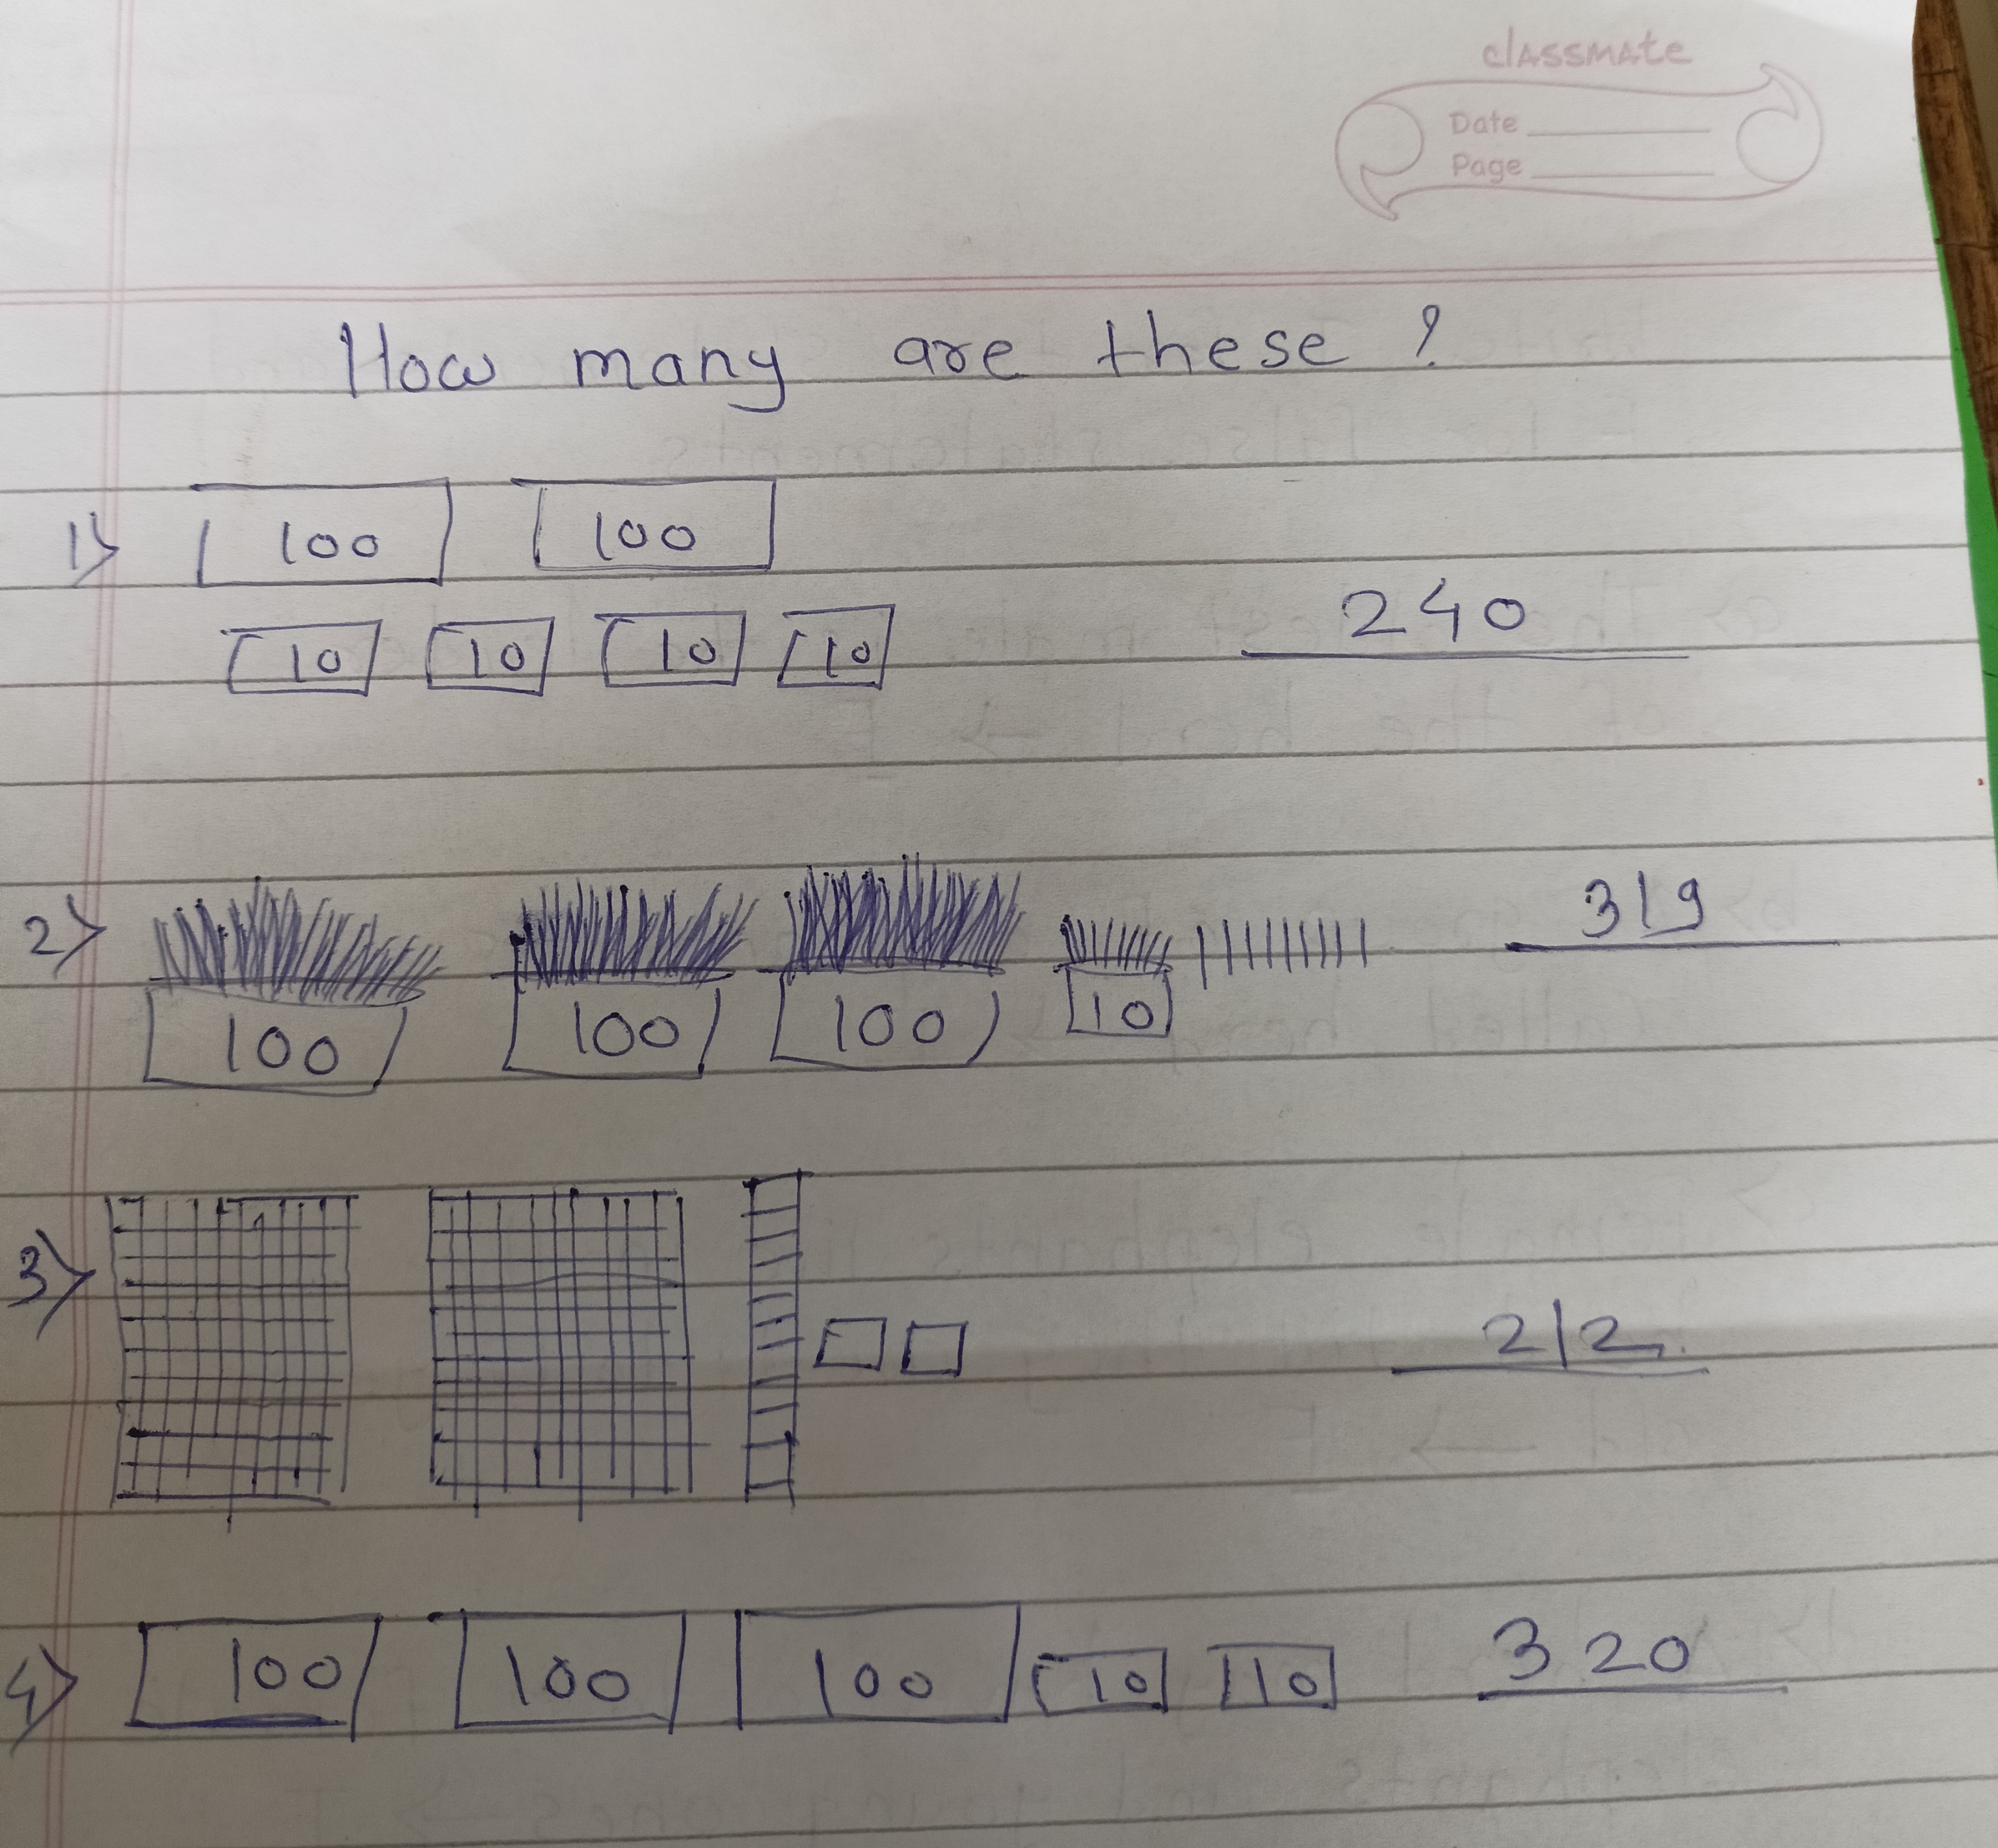 classmate
Date
Page
How many are these ?
1) 100 100
10 10 10 10 240
2) 100 100 100 10 319
3) 212
4) 100 100 100 10 10 320